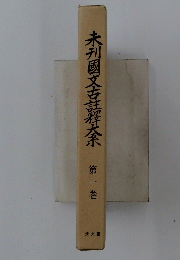 未刊國文古註釋大系
第一巻